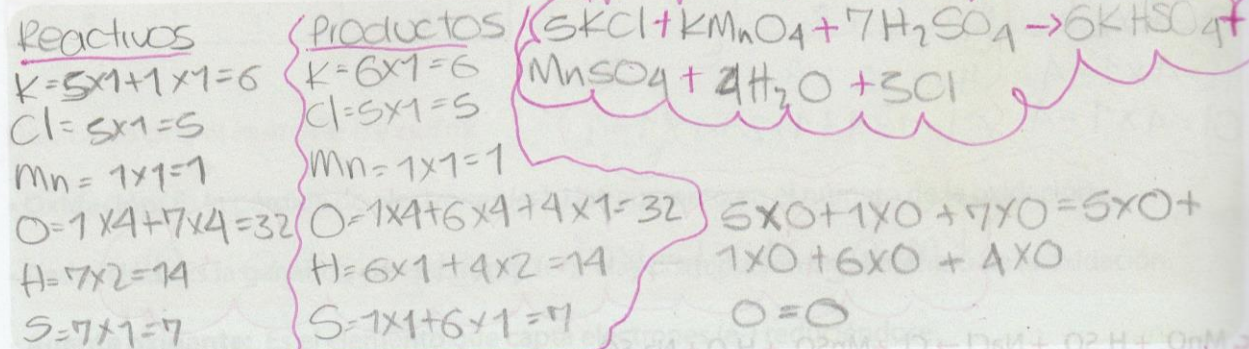 Reactivos
K=5x1+1x1=6
Cl=5x1=5
Mn=1x1=1
O=1x4+7x4=32
H=7x2=14
S=7x1=7
Productos
K=6x1=6
Cl=5x1=5
Mn=1x1=1
O=1x4+6x4+4x1=32
H=6x1+4x2=14
S=1x1+6x1=7
5KCl+KMnO4+7H2SO4→6KHSO4+
MnSO4+4H2O+5Cl
5x0+1x0+7x0=5x0+
1x0+6x0+4x0
0=0